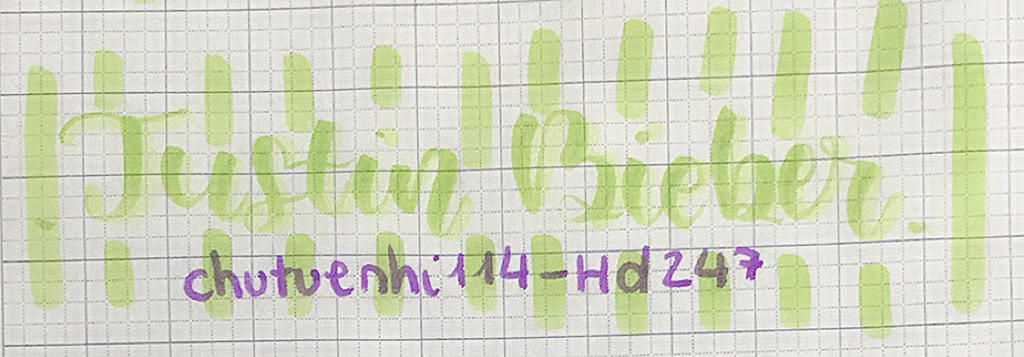 Justin Bieber
chutuenhi114-Hd247